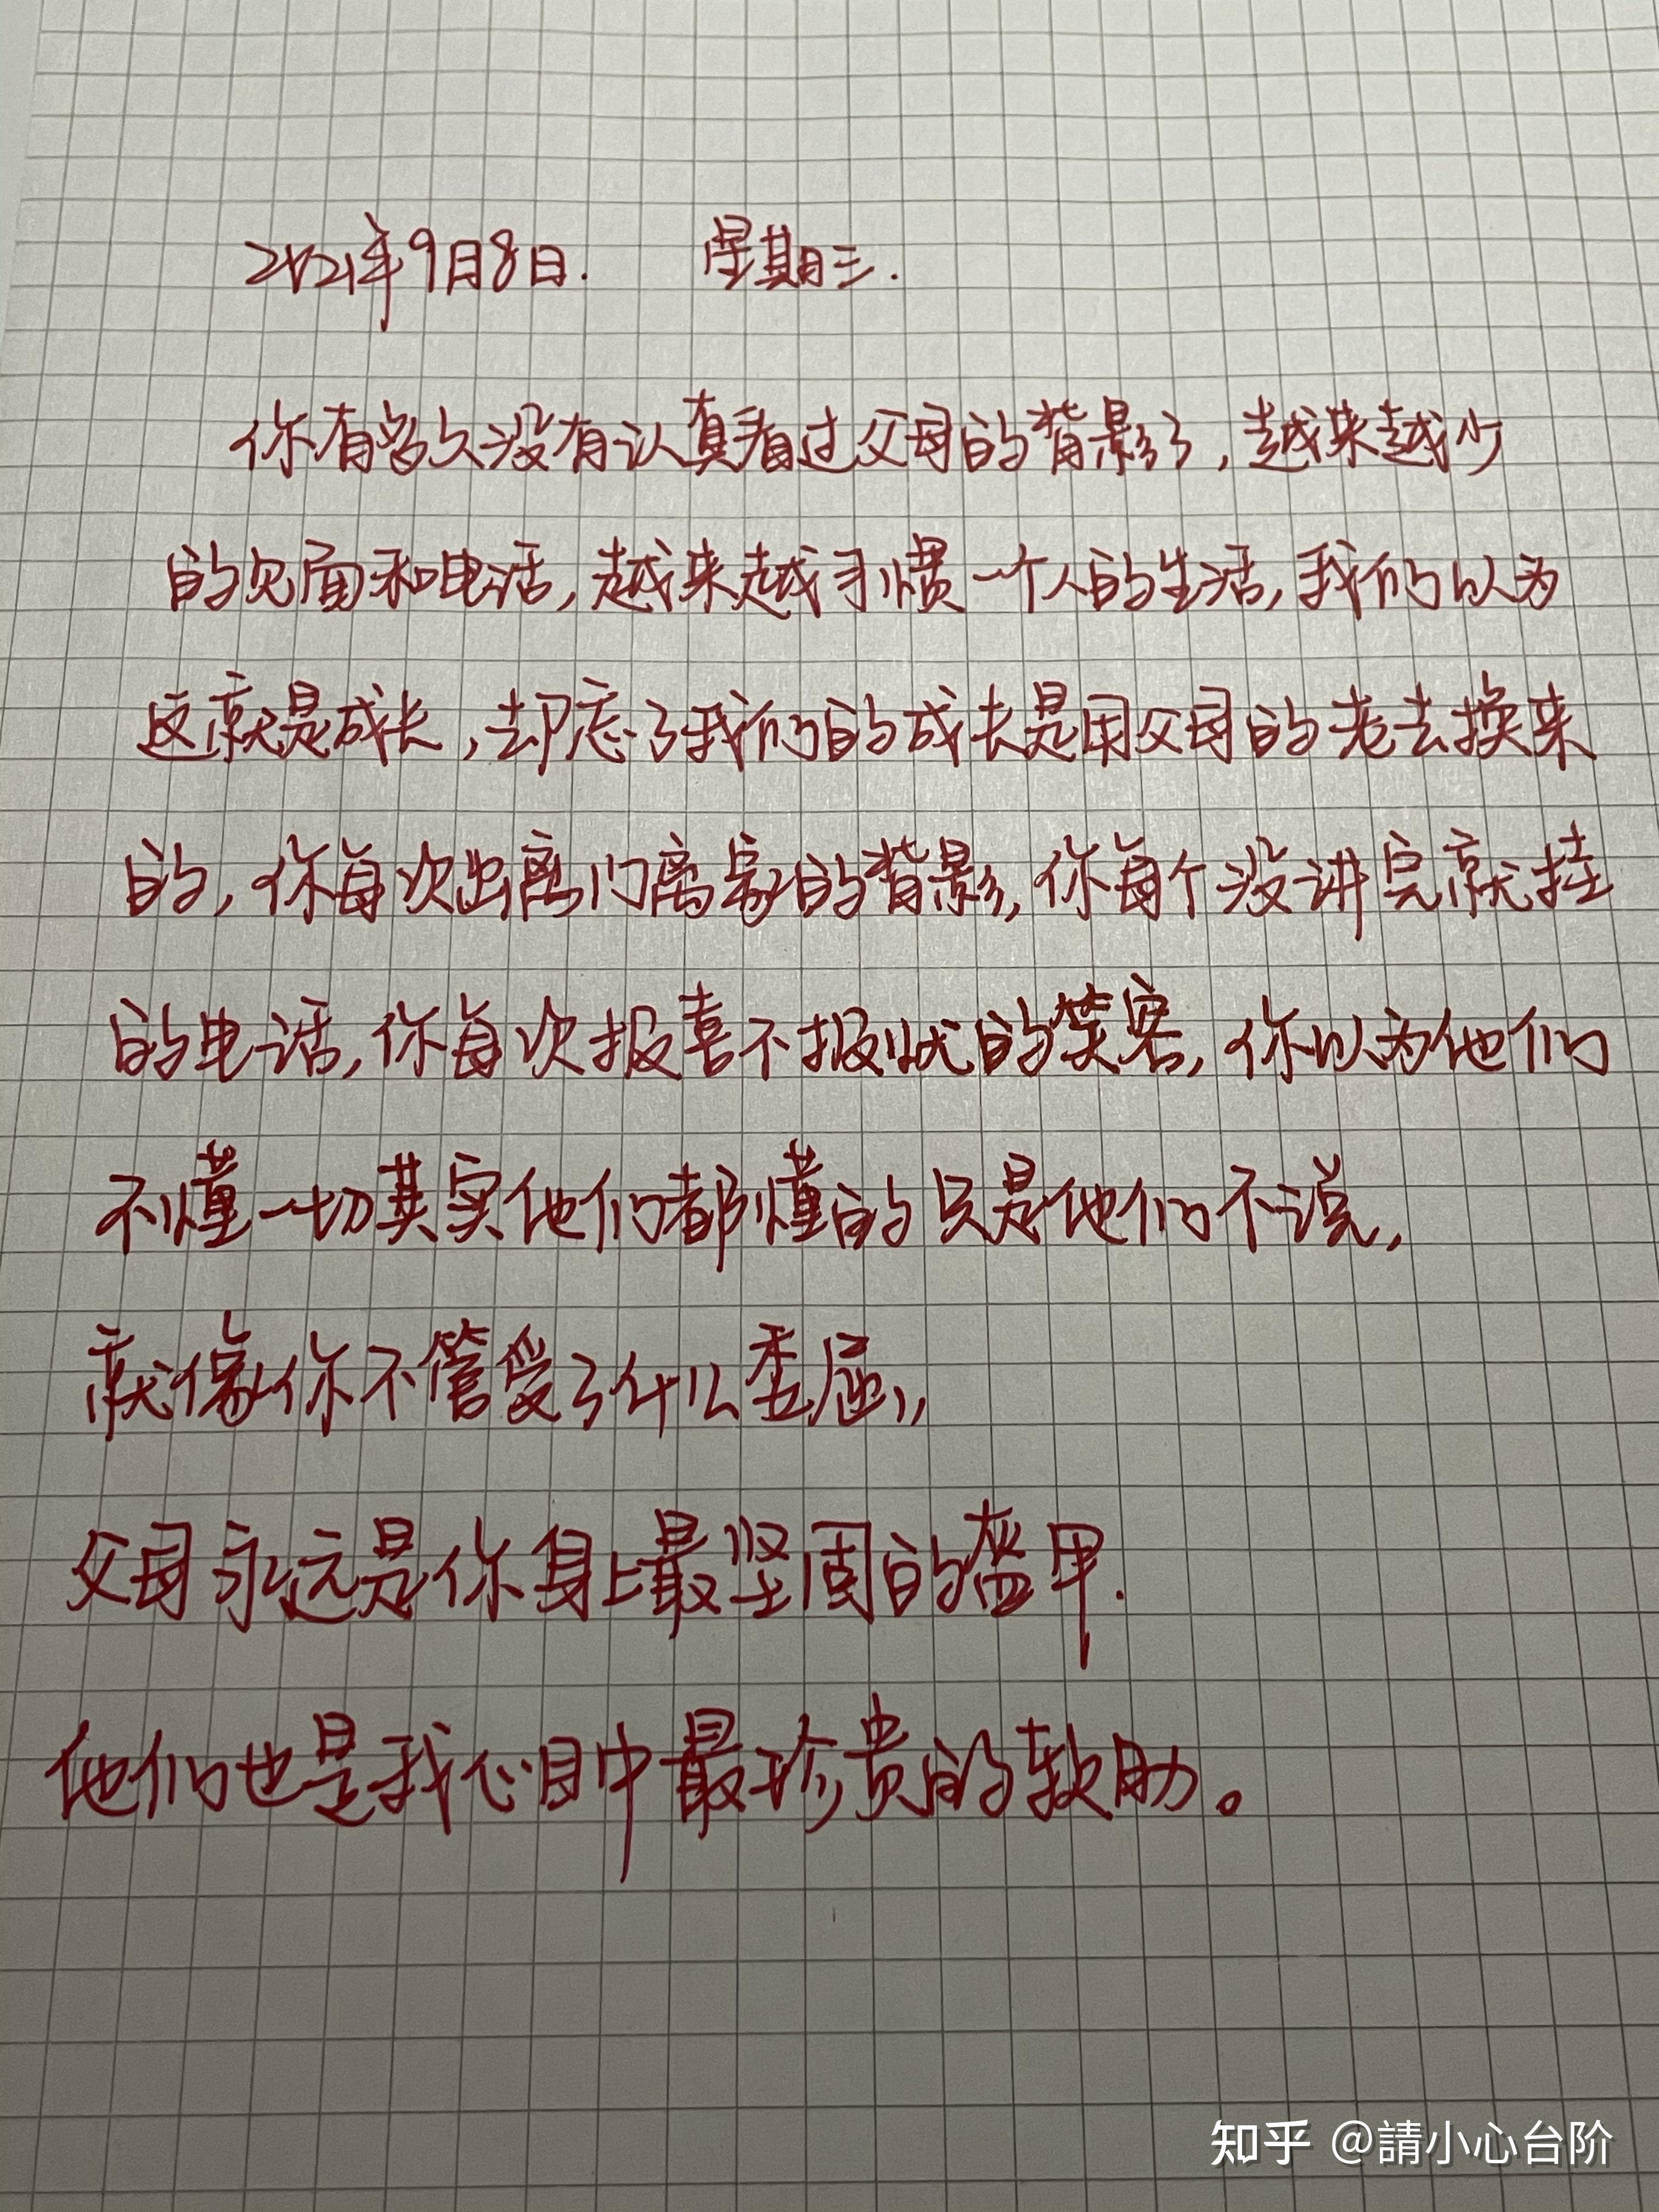 2021年9月8日. 星期三.
你有多久没有认真看过父母的背影了,越来越少
的见面和电话,越来越习惯一个人的生活,我们以为
这就是成长,却忘了我们的成长是用父母的老去换来
的,你每次出离门离家的背影,你每个没讲完就挂
的电话,你每次报喜不报忧的笑容,你以为他们
不懂一切其实他们都懂的只是他们不说,
就像你不管受了什么委屈,,
父母永远是你身上最坚固的盔甲.
他们也是我心目中最珍贵的软肋。
知乎 @請小心台阶